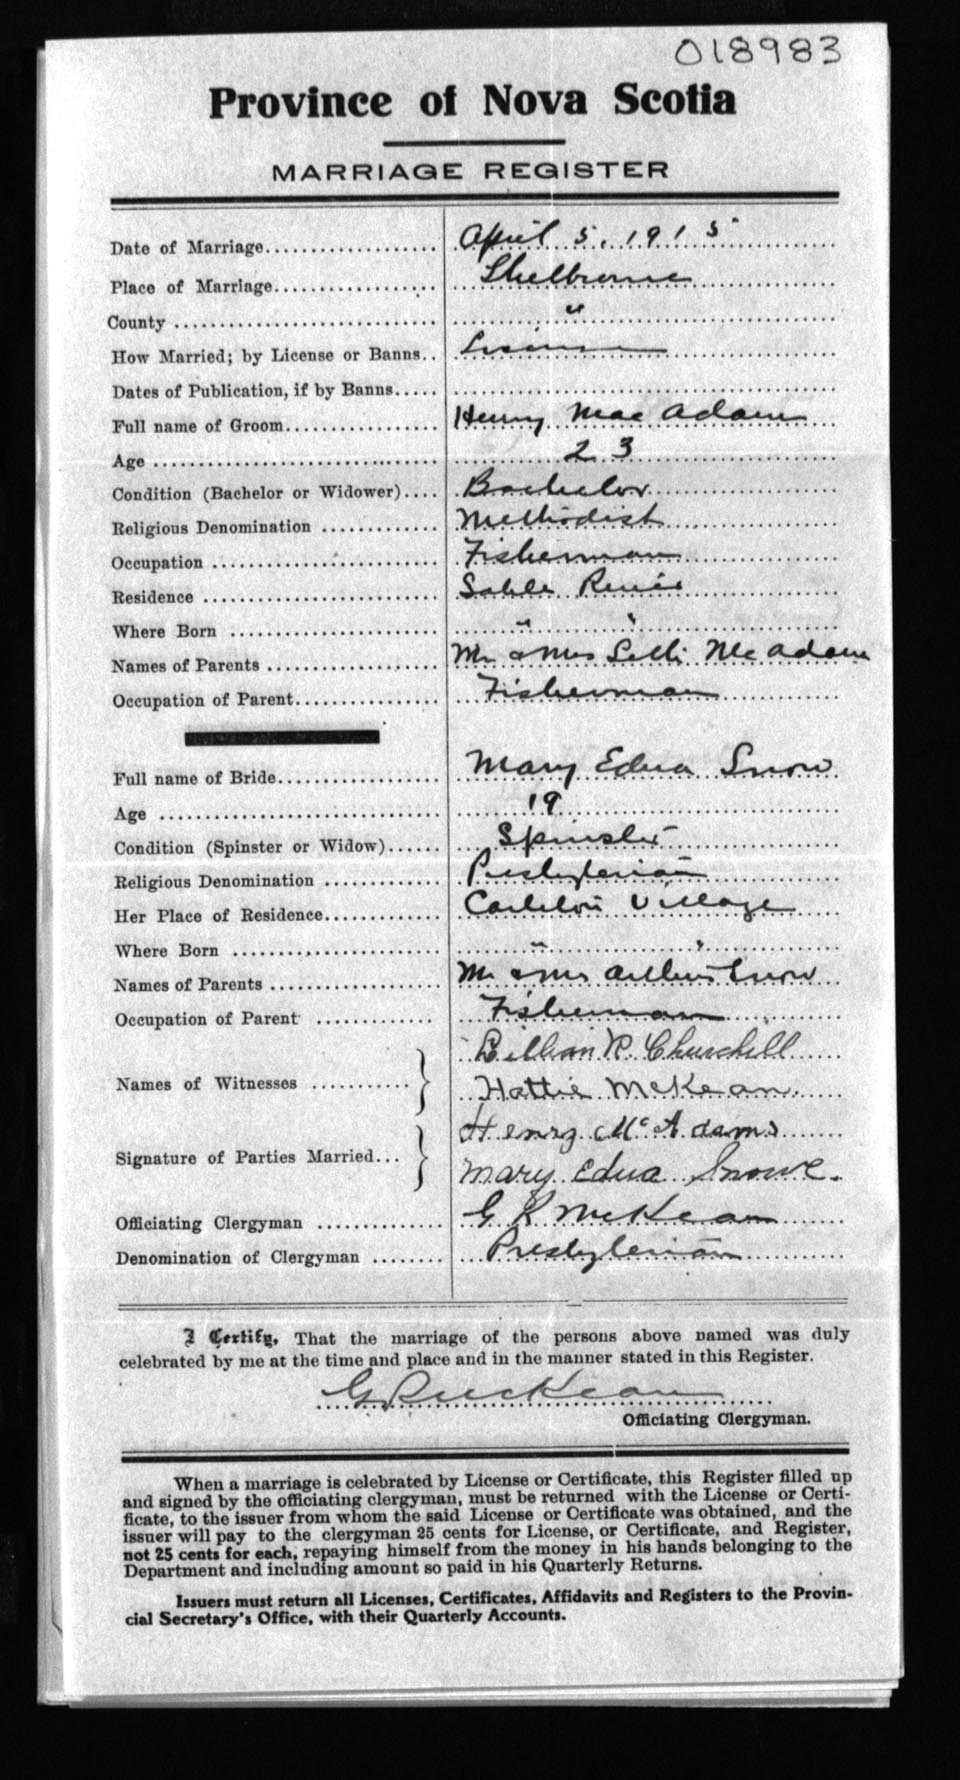 018983
Province of Nova Scotia
MARRIAGE REGISTER
Date of Marriage................... April 5, 1915
Place of Marriage.................. Shelburne
County ............................. "
How Married; by License or Banns.. License
Dates of Publication, if by Banns.....
Full name of Groom................. Henry Mac Adams
Age ................................ 23
Condition (Bachelor or Widower).... Bachelor
Religious Denomination ............. Methodist
Occupation ......................... Fisherman
Residence .......................... Sable River
Where Born ....................... " "
Names of Parents ................... Mr & Mrs McAdams
Occupation of Parent................ Fisherman
Full name of Bride.................. Mary Edna Snow
Age ............................... 19
Condition (Spinster or Widow)...... Spinster
Religious Denomination ............. Presbyterian
Her Place of Residence............. Carleton Village
Where Born ....................... " "
Names of Parents ................... Mr & Mrs Snow
Occupation of Parent ............. Fisherman
Lillian R. Churchill
Names of Witnesses ...........} Hattie McKean
Henry McAdams
Signature of Parties Married...} Mary Edna Snowe.
Officiating Clergyman .............. G R McKean
Denomination of Clergyman ........ Presbyterian
I Certify, That the marriage of the persons above named was duly
celebrated by me at the time and place and in the manner stated in this Register.
G R McKean
Officiating Clergyman.
When a marriage is celebrated by License or Certificate, this Register filled up
and signed by the officiating clergyman, must be returned with the License or Certi-
ficate, to the issuer from whom the said License or Certificate was obtained, and the
issuer will pay to the clergyman 25 cents for License, or Certificate, and Register,
not 25 cents for each, repaying himself from the money in his hands belonging to the
Department and including amount so paid in his Quarterly Returns.
Issuers must return all Licenses, Certificates, Affidavits and Registers to the Provin-
cial Secretary's Office, with their Quarterly Accounts.